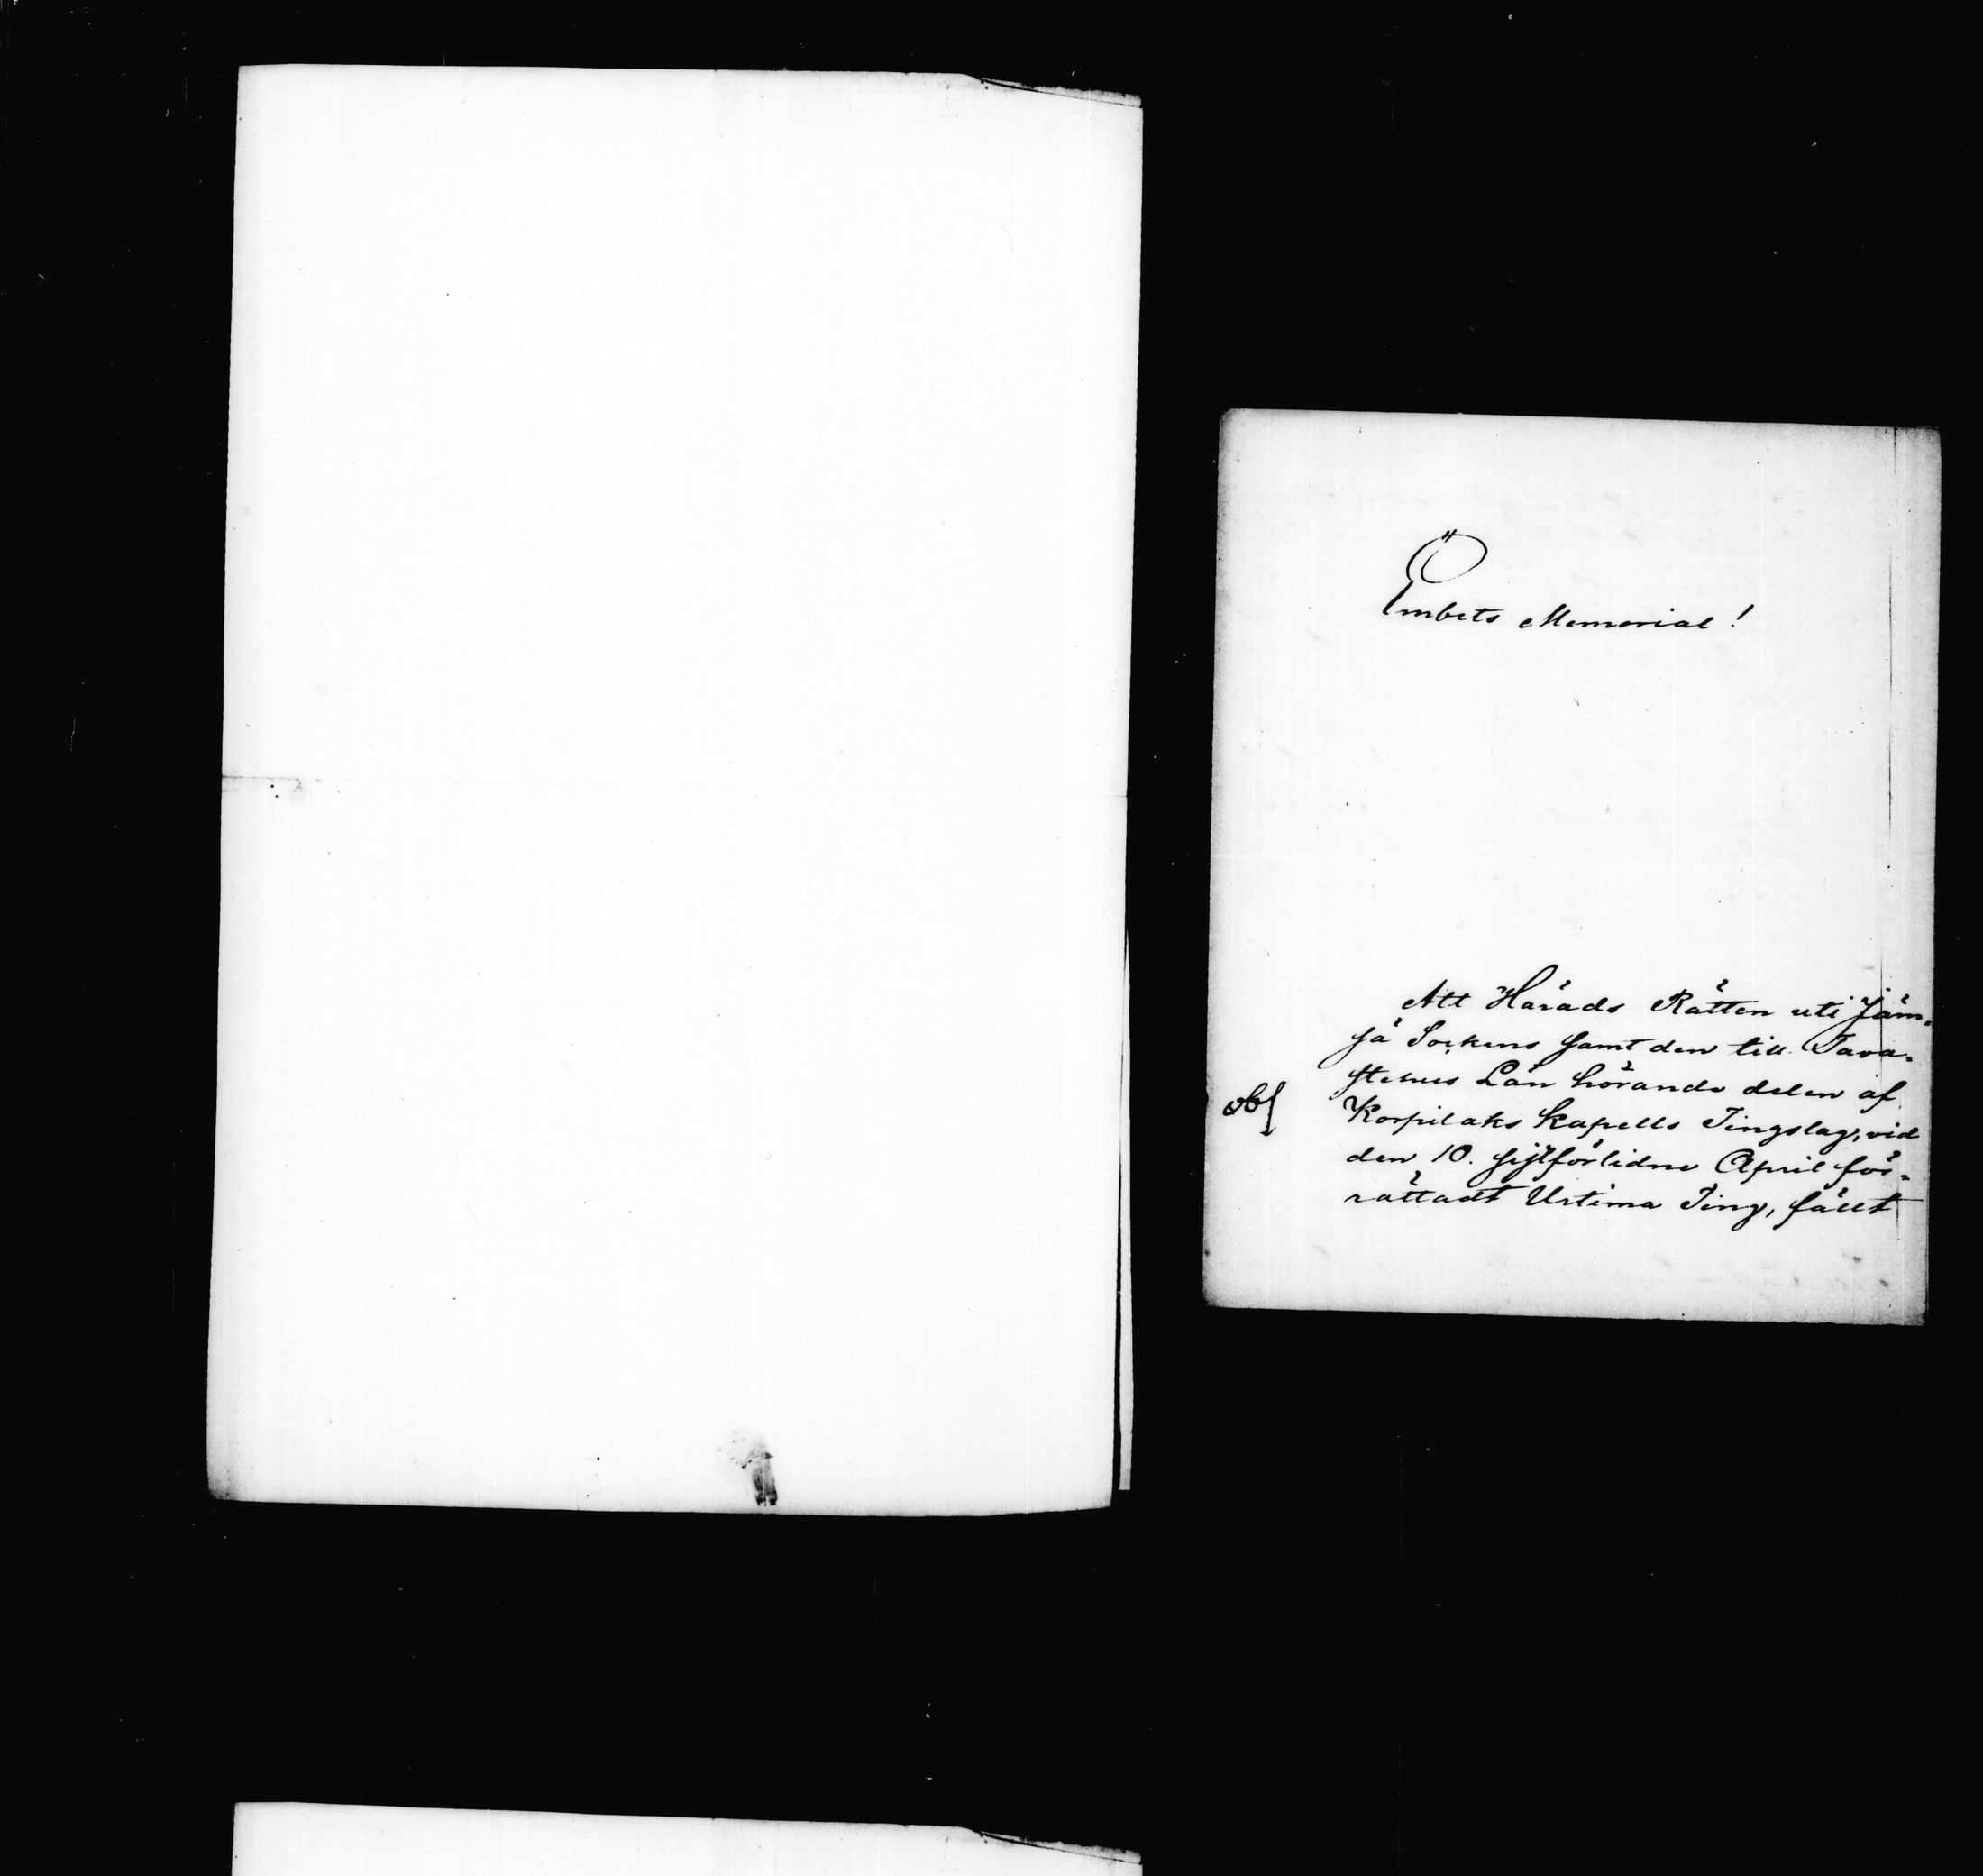 Ö
Embets Memorial!
Att Härads Rätten uti Jäm-
sä Sockens samt den till Tava-
stehus Län hörande delen af
Korpilaks kapells Tingslag, vid
den 10. sistförlidne April för-
rättadt Urtima Ting, fällt